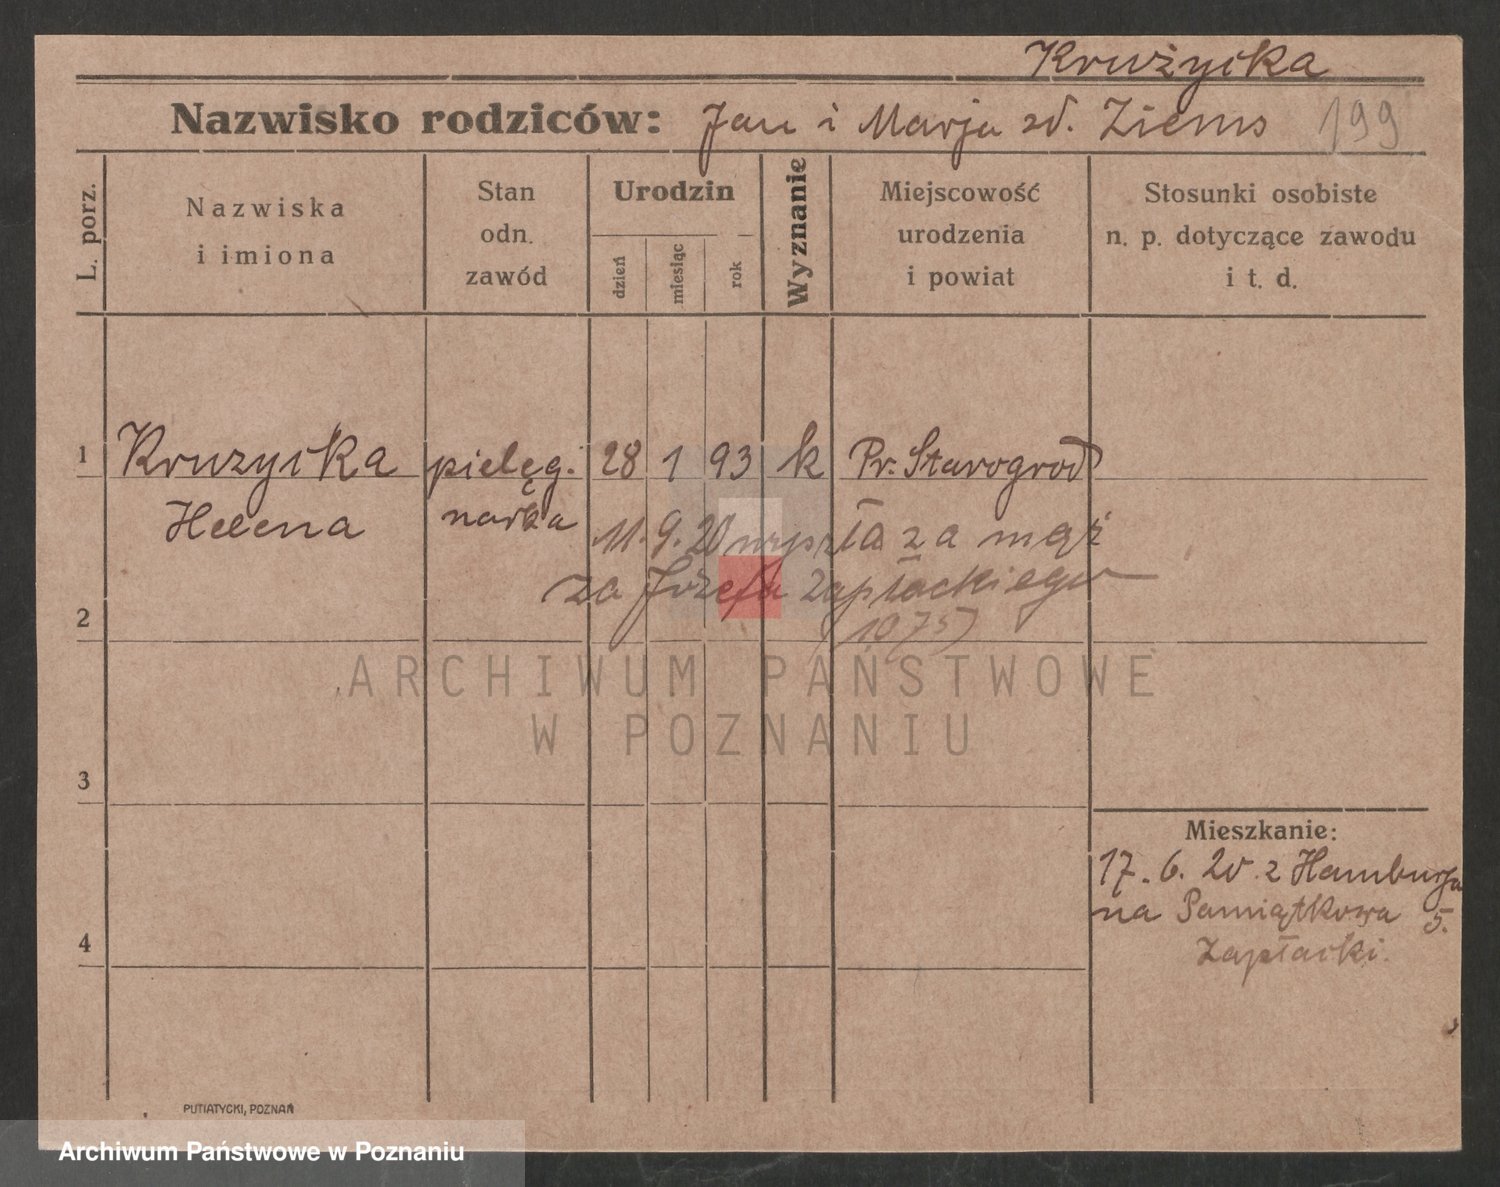 Krużycka
Nazwisko rodziców: Jan i Marja zd. Ziems 199
L. porz.
Nazwiska
i imiona
Stan
odn.
zawód
Urodzin
dzień
miesiąc
rok
Wyznanie
Miejscowość
urodzenia
i powiat
Stosunki osobiste
n. p. dotyczące zawodu
i t. d.
1 Kruzycka pielęg. 28 1 93 k Pr. Starogrod
Helena narka
11. 9. 20 wyszła za mąż
za Józefa Zapłackiego
2
ARCHIWUM PAŃSTWOWE
W POZNANIU
3
Mieszkanie:
17. 6. 20. z Hamburga
na Pamiątkowa 5.
4
Zapłacki.
PUTIATYCKI, POZNAŃ
Archiwum Państwowe w Poznaniu